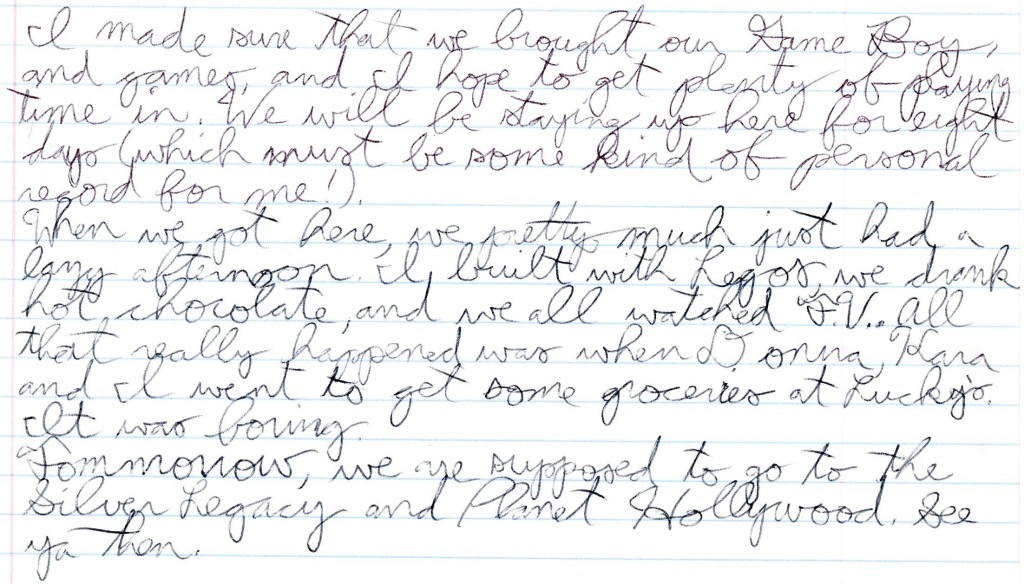 I made sure that we brought our Game Boy,
and games, and I hope to get plenty of playing
time in. We will be staying up here for eight
days (which must be some kind of personal
record for me!).
When we got here, we pretty much just had a
lazy afternoon. I built with Legos, we drank
hot chocolate, and we all watched T.V.. All
that really happened was when Donna, Kara
and I went to get some groceries at Lucky's.
It was boring.
Tommorrow, we are supposed to go to the
Silver Legacy and Planet Hollywood. See
ya then.